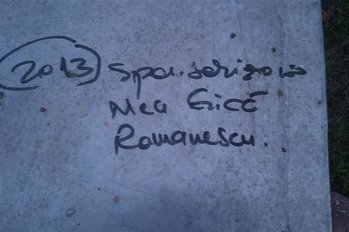 2013 Sponsorizare
Mea Gică
Romanescu..